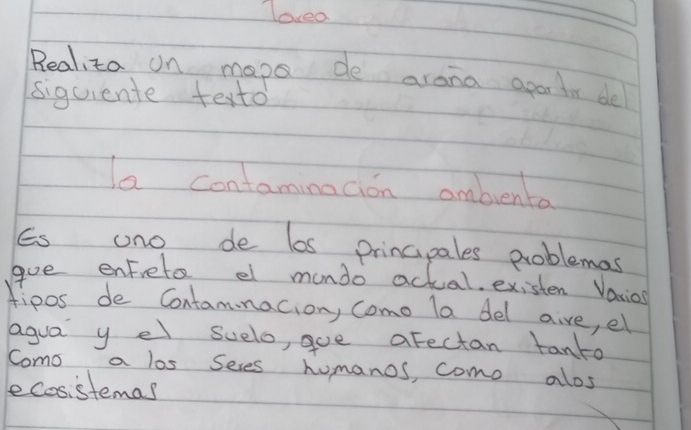 Tarea
Realiza un mapa de araña apartir del
siguiente texto
la contaminación ambienta
Es uno de los principales problemas
que enfreta el mundo actual. existen Varios
tipos de Contaminacion, como la del aire, el
agua y el suelo, que afectan tanto
Como a los Seres humanos, como alos
ecosistemas